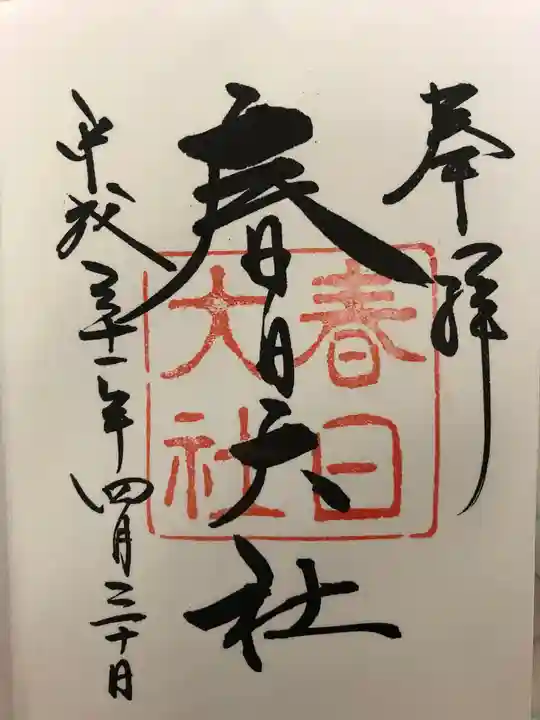 奉拝
春日大社
春日
大社
平成三十一年四月三十日